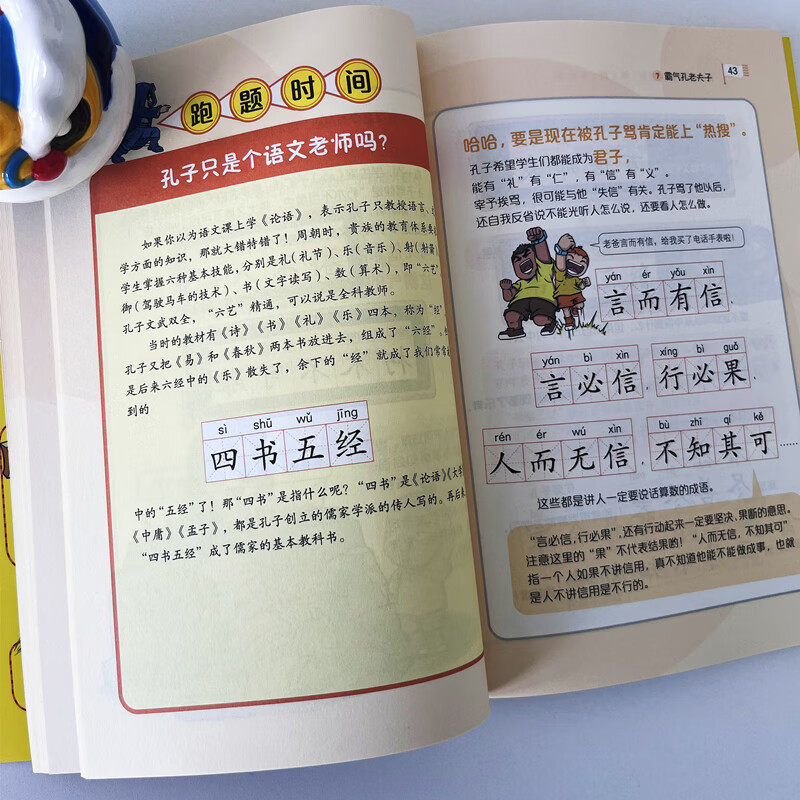 跑题时间
孔子只是个语文老师吗？
如果你以为语文课上学《论语》，表示孔子只教授语言、
学方面的知识，那就大错特错了！周朝时，贵族的教育体系
学生掌握六种基本技能，分别是礼(礼节)、乐(音乐)、射(射箭
御(驾驶马车的技术)、书(文字读写)、数(算术)，即“六艺
孔子文武双全，“六艺”精通，可以说是全科教师。
当时的教材有《诗》《书》《礼》《乐》四本，称为“经
孔子又把《易》和《春秋》两本书放进去，组成了“六经”。
是后来六经中的《乐》散失了，余下的“经”就成了我们常
到的
sì shū wǔ jīng
四书五经
中的“五经”了！那“四书”是指什么呢？“四书”是《论语》《大学
《中庸》《孟子》，都是孔子创立的儒家学派的传人写的。再后来
“四书五经”成了儒家的基本教科书。
7 霸气孔老夫子 43
哈哈，要是现在被孔子骂肯定能上“热搜”。
孔子希望学生们都能成为君子，
能有“礼”有“仁”，有“信”有“义”。
宰予挨骂，很可能与他“失信”有关。孔子骂了他以后，
还自我反省说不能光听人怎么说，还要看人怎么做。
老爸言而有信，给我买了电话手表啦！
yán ér yǒu xìn
言而有信、
yán bì xìn xíng bì guǒ
言必信，行必果、
rén ér wú xìn bù zhī qí kě
人而无信，不知其可……
这些都是讲人一定要说话算数的成语。
“言必信，行必果”，还有行动起来一定要坚决、果断的意思。
注意这里的“果”不代表结果哟！“人而无信，不知其可”
指一个人如果不讲信用，真不知道他能不能做成事，也就
是人不讲信用是不行的。